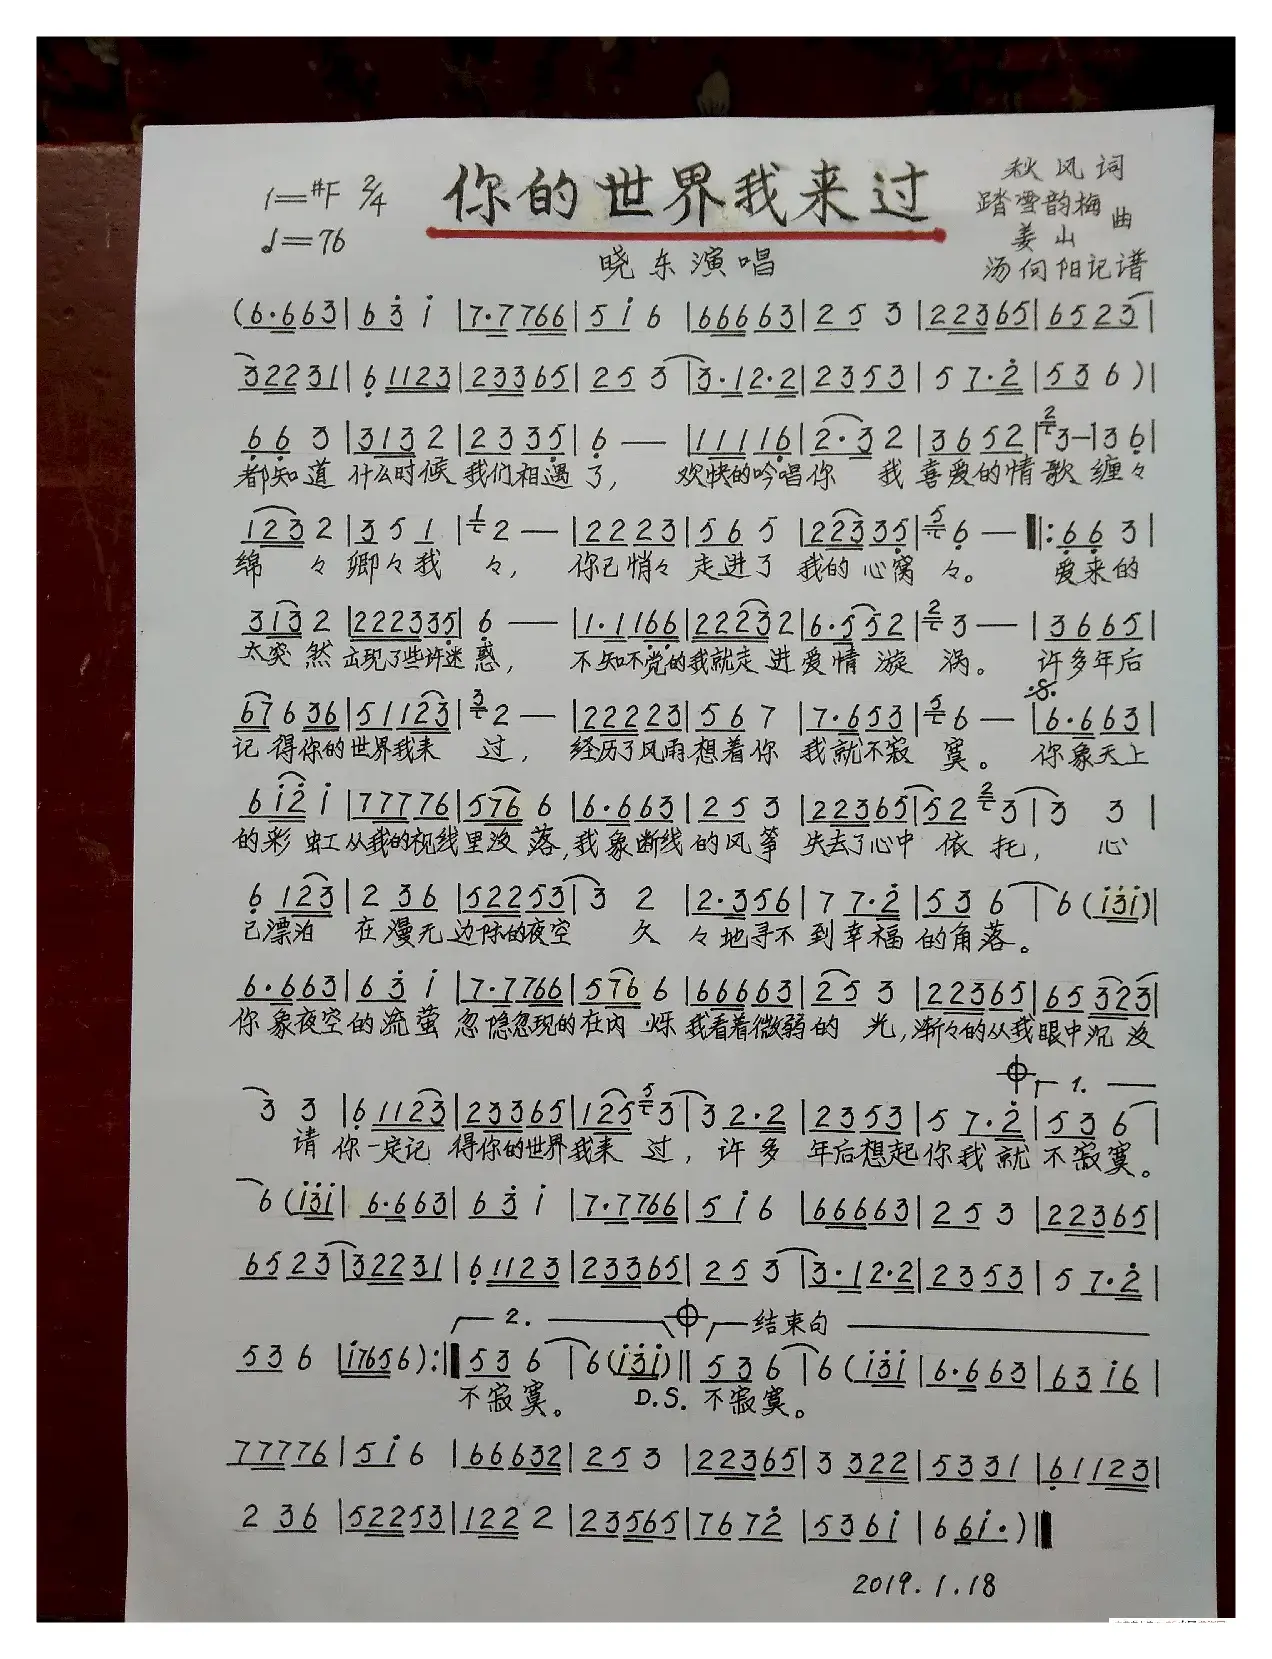 1=#F 2/4
♩=76
你的世界我来过
秋风词
踏雪韵梅
姜山 曲
汤向阳记谱
晓东演唱
(6·663|63̇ 1̇|7·7766|51̇ 6|66663|25 3|22365|6523|
32231|6̣1123|23365|253|3·12·2|2353|5 7·2̇|536)|
6̣6̣ 3|313 2|2335̣|6̣ —|11116̣|2·3 2|3652|3—|36̣|
都知道 什么时候 我们相遇了, 欢快的吟唱你 我喜爱的情歌缠々
123 2|351|2—|2223|565|22335̣|6̣—‖:6̣6̣ 3|
绵々卿々我々, 你已悄々走进了 我的心窝々。 爱来的
313 2|222335̣|6̣ —|1·116̣6̣|22232|6·552|3—|3665|
太突然 出现了些许迷惑, 不知不觉的我就走进爱情漩涡。 许多年后
67636|51123|2—|22223|567|7·653|6—|6·663|
记得你的世界我来过, 经历了风雨想着你 我就不寂寞。 你象天上
61̇2̇ 1̇|77776|5766|6·663|253|22365|523|3 3|
的彩虹从我的视线里没落,我象断线的风筝 失去了心中依托, 心
6̣ 123|2 36|52253|3 2|2·356|7 7·2̇|536|6(1̇3̇1̇)|
已漂泊 在漫无边际的夜空 久々地寻不到幸福的角落。
6·663|63̇ 1̇|7·7766|5766|66663|253|22365|65323|
你象夜空的流萤 忽隐忽现的在闪烁我看着微弱的光,渐々的从我眼中沉没
1.
3 3|6̣1123|23365|1253|32·2|2353|5 7·2̇|536|
请你一定记得你的世界我来过, 许多年后想起你我就不寂寞。
6(1̇3̇1̇|6·663|63̇ 1̇|7·7766|51̇6|66663|253|22365|
6523|32231|6̣1123|23365|253|3·12·2|2353|5 7·2̇|
2. 结束句
536|1̇7656):‖536|6(1̇3̇1̇)‖536|6(1̇3̇1̇|6·663|631̇6|
不寂寞。 D.S. 不寂寞。
77776|51̇6|66632|253|22365|3322|5331|6̣1123|
236|52253|1222|23565|7672̇|5361̇|661̇·)‖
2019.1.18